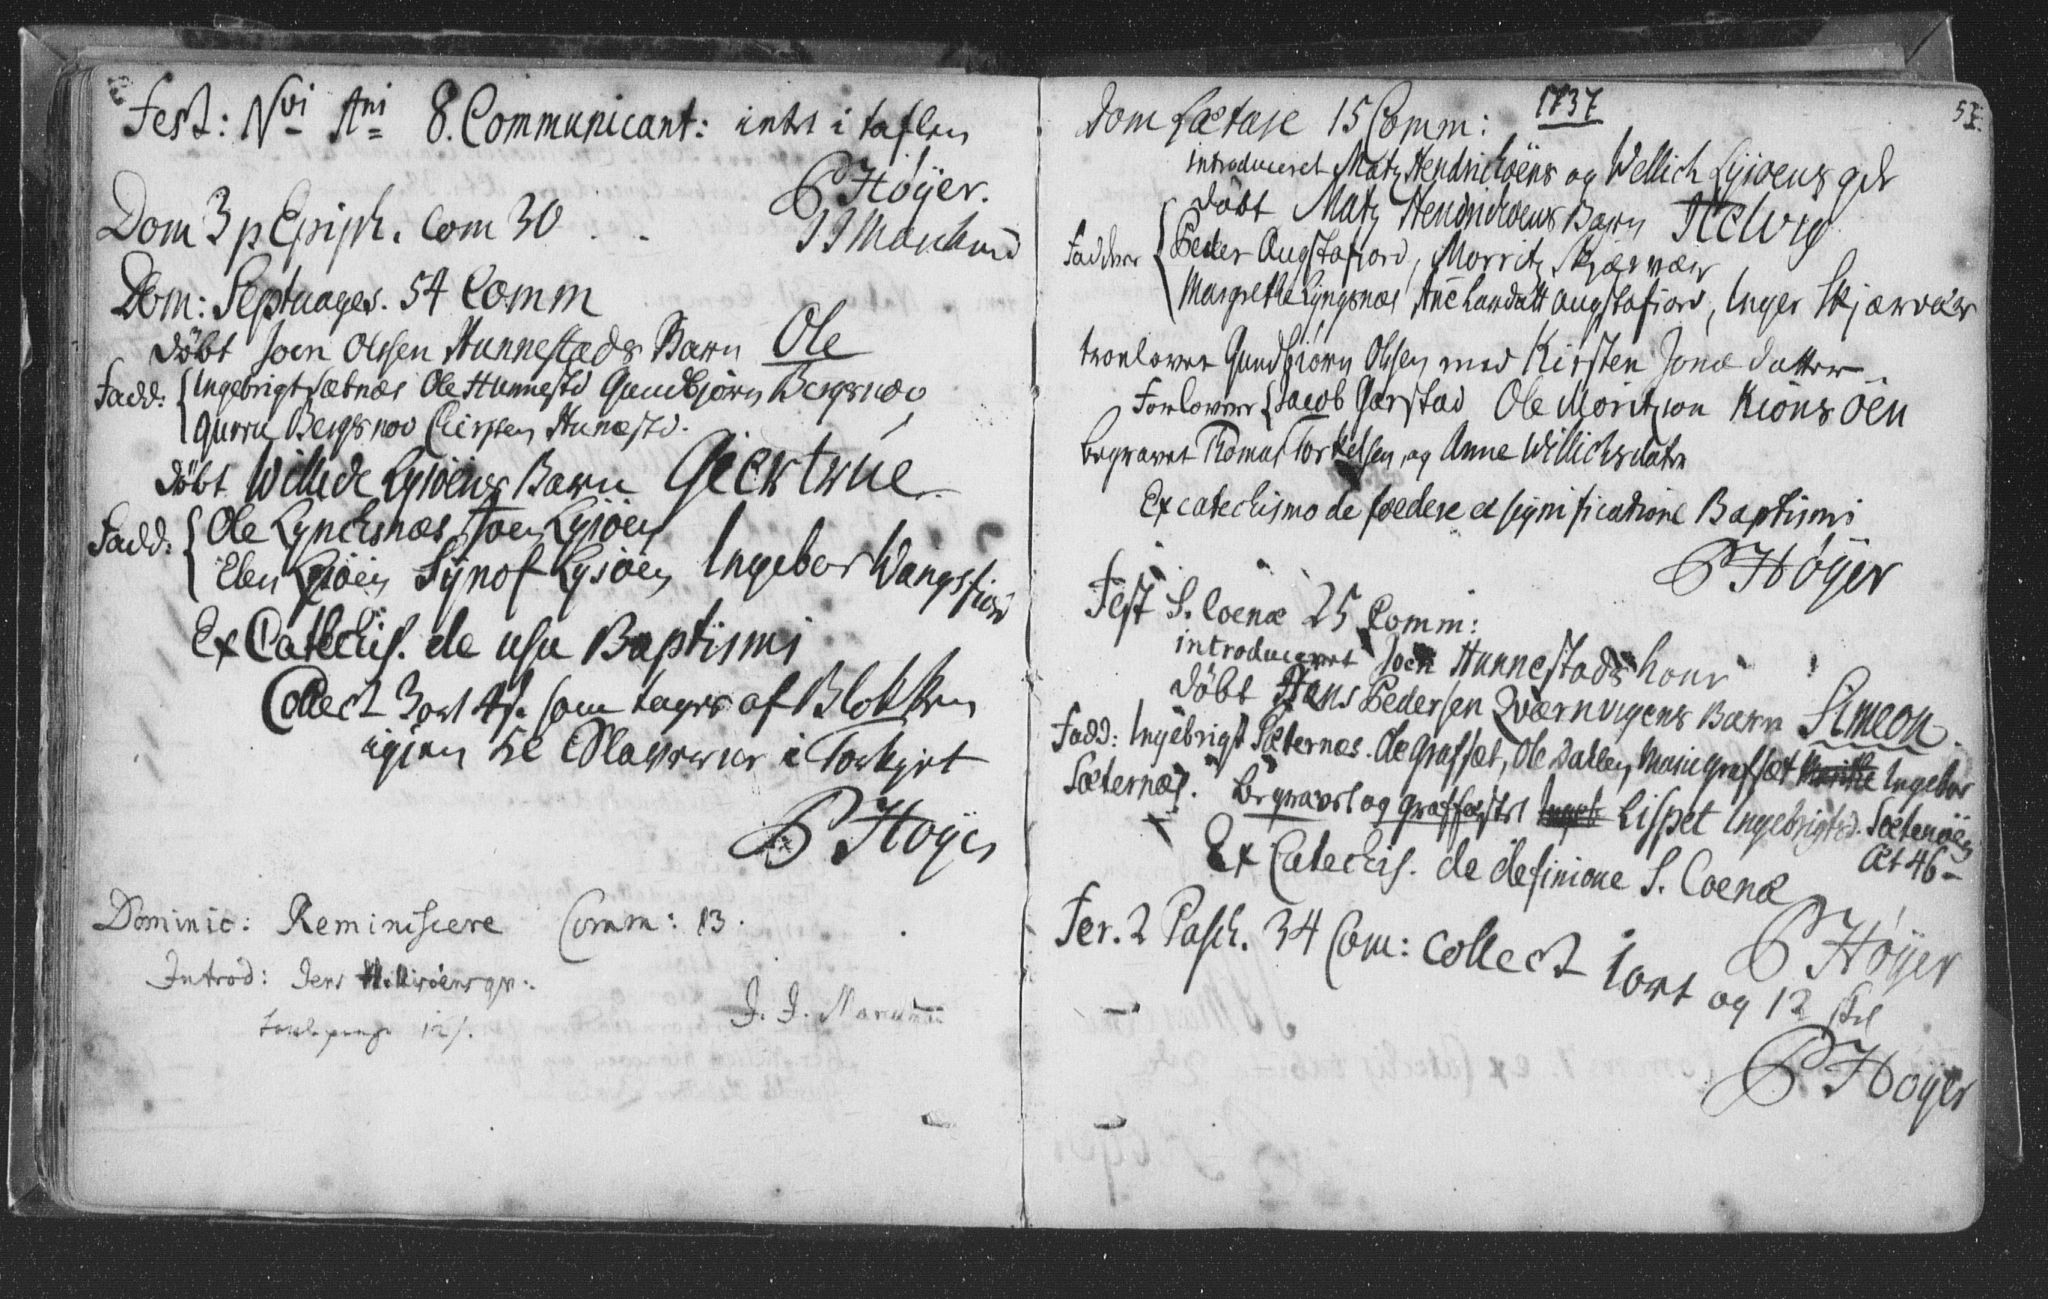 Fest: Nvi Ani 8. Communicant: intet i taflen
PHøÿer.
Dom 3 p Epiph. Com 30
Dom: Septuages. 54 Comm
døbt Joen Olssen Hunnestads Barn Ole
Fadd: Ingebrigt Sætnæs Ole Hunnestd Gundbjørn Bergsnov
Guru Bergsnov Hunestd.
døbt Lysøens Barn Giertrue
Fadd: Ole Lyncksnæs, Joen Lysøen
Elen Lysøen Synof Lysøen Ingebor Wangsfiord
Ex Catechis. de usu Baptismi
Collect 3 ort 4 s. som tages af Blokken
igien til i Torkyrt
PHøyer
Dominic: Reminiscere Comm: 13.
Introd: Jens
12 s.
J. J.
1737
57.
Dom Lætare 15 Comm:
introduceret Matz Hendrichøens og Wellich Lysøens qdr
døbt Matz Hendrichøens Barn Helvig
Fadder Peder Augstafiord, Morritz Skjærvær
Margrethe Lyngsnæs Ane Augstafiord, Inger Skjærvær
trorlovet Gundbjørn Olsen med Kirsten Jons datter
Forlover Jacob Garstad Ole Moritzøn Kiønsøen
begravet Thomas Torkelsen, og Anne Willichsdatr
Ex catechismo de foedere et significatione Baptismi
PHøÿer
Fest S. Coenæ 25 Comm:
introduceret Joen Hunnestads kone
døbt Hans Pedersen Qværnvigens Barn Simeon.
Fadd: Ingebrigt Sæternæs. Ole Grafsæt, Ole Dallen, Maria Grafsæt Ingebor
Sæternæs. Begravet og græsfæstet Lispet Ingebrigtsd. Sætenøen
Æt 46
Ex Catechis. de definione S. Coenæ
PHøÿer
Fer. 2 Pasch. 34 Com: Collect 1 ort og 12 skil
PHøyer